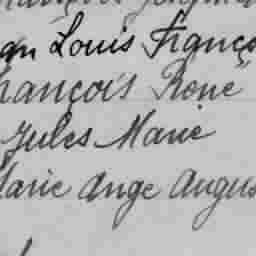 an Louis Franço
rançois René
Jules Marie
Marie Ange Augus